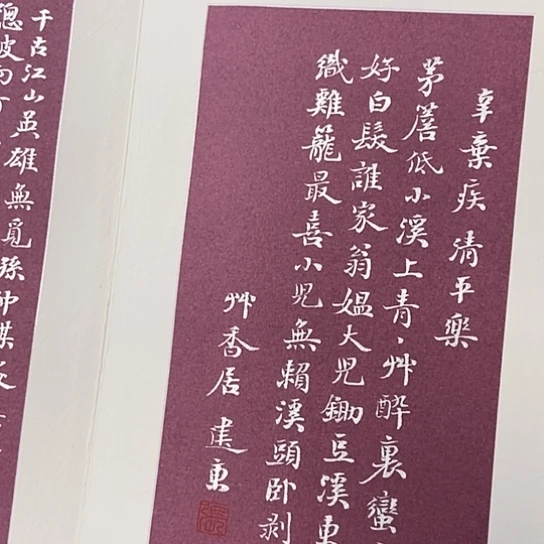 辛棄疾 清平樂
茅簷低小溪上青、艸醉裏蠻
好白髮誰家翁媼大兒鋤豆溪東
織雞籠最喜小兒無賴溪頭卧剥
艸香居 建東
千古江山英雄無覓孫仲謀
總被雨打